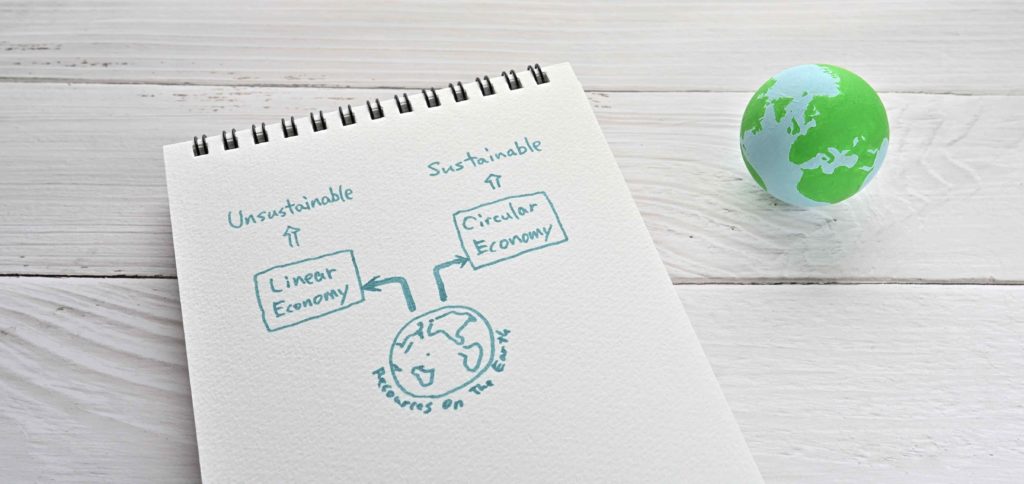 Unsustainable
Sustainable
Linear
Economy
Circular
Economy
Resources On The Earth